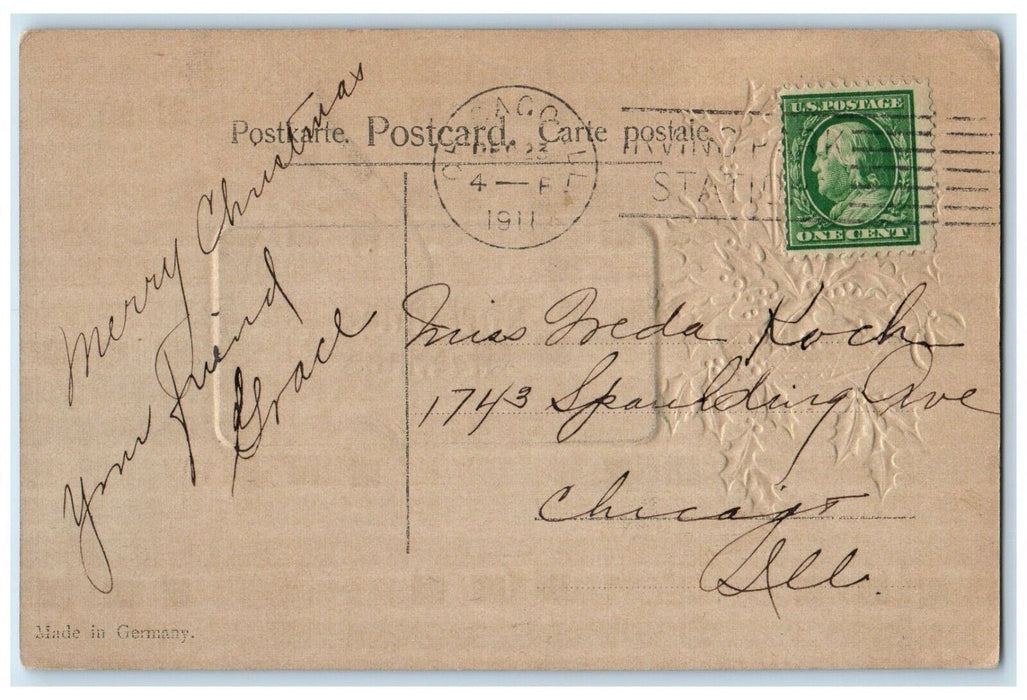 Postkarte. Postcard. Carte postale.
CHICAGO, ILL.
DEC 23
4 — P
1911
IRVING PARK
STATION
U.S. POSTAGE
ONE CENT
Merry Christmas
Your Friend
Grace
Miss Freda Koch
1743 Spaulding Ave
Chicago
Ill.
Made in Germany.